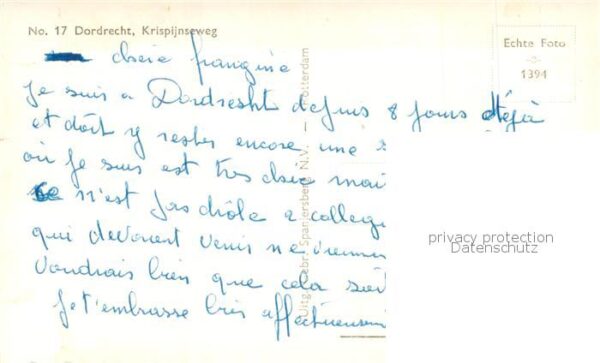 No. 17 Dordrecht, Krispijnseweg
Echte Foto
1394
chere frangine
Je suis a Dordresht depuis 8 jours déjà
et doit y rester encore une s
où je suis est tres chere mai
ce n'est pas drôle 2 collegu
qui devouent venir ne vienn
Voudrais bien que cela soit
Je t'embrasse bien affectueusem
Uitg. Gebr. Spanjersberg N.V. — Rotterdam
privacy protection
Datenschutz